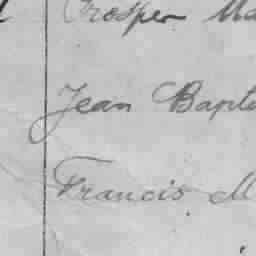 Prosper Ma
Jean Bapt
Francis M